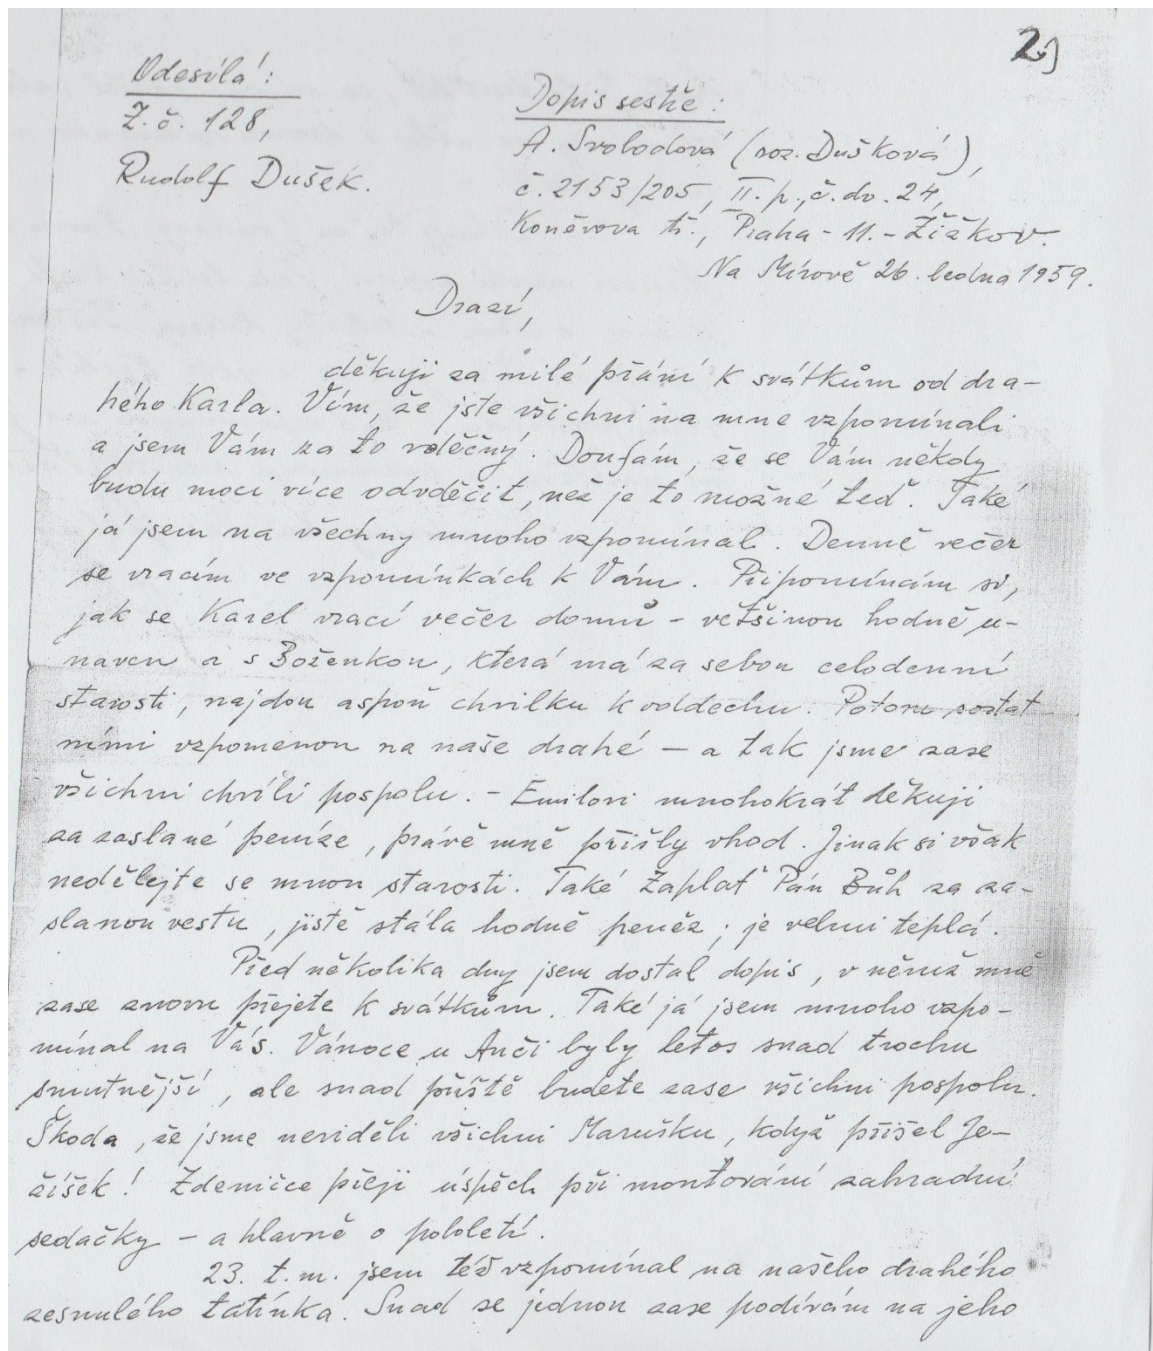 2.)
Odesílá:
Z. č. 128,
Rudolf Dušek.
Dopis sestře:
A. Svobodová (roz. Dušková),
č. 2153/205, II. p., č. dv. 24,
Koněvova tř., Praha - 11. - Žižkov.
Na Mírově 26. ledna 1959.
Drazí,
děkuji za milé přání k svátkům od dra-
hého Karla. Vím, že jste všichni na mne vzpomínali
a jsem Vám za to vděčný. Doufám, že se Vám někdy
budu moci více odvděčit, než je to možné teď. Také
já jsem na všechny mnoho vzpomínal. Denně večer
se vracím ve vzpomínkách k Vám. Připomínám si,
jak se Karel vrací večer domů - většinou hodně u-
naven a s Boženkou, která má za sebou celodenní
starosti, najdou aspoň chvilku k oddechu. Potom s ostat-
ními vzpomenou na naše drahé - a tak jsme zase
všichni chvíli pospolu. - Emilovi mnohokrát děkuji
za zaslané peníze, právě mně přišly vhod. Jinak si však
nedělejte se mnou starosti. Také Zaplať Pán Bůh za za-
slanou vestu, jistě stála hodně peněz; je velmi teplá.
Před několika dny jsem dostal dopis, v němž mně
zase znovu přejete k svátkům. Také já jsem mnoho vzpo-
mínal na Vás. Vánoce u Anči byly letos snad trochu
smutnější, ale snad příště budete zase všichni pospolu.
Škoda, že jsme neviděli všichni Marušku, když přišel Je-
žíšek! Zdeničce přeji úspěch při montování zahradní
sedačky - a hlavně o pololetí.
23. t. m. jsem též vzpomínal na našeho drahého
zesnulého tatínka. Snad se jednou zase podívám na jeho